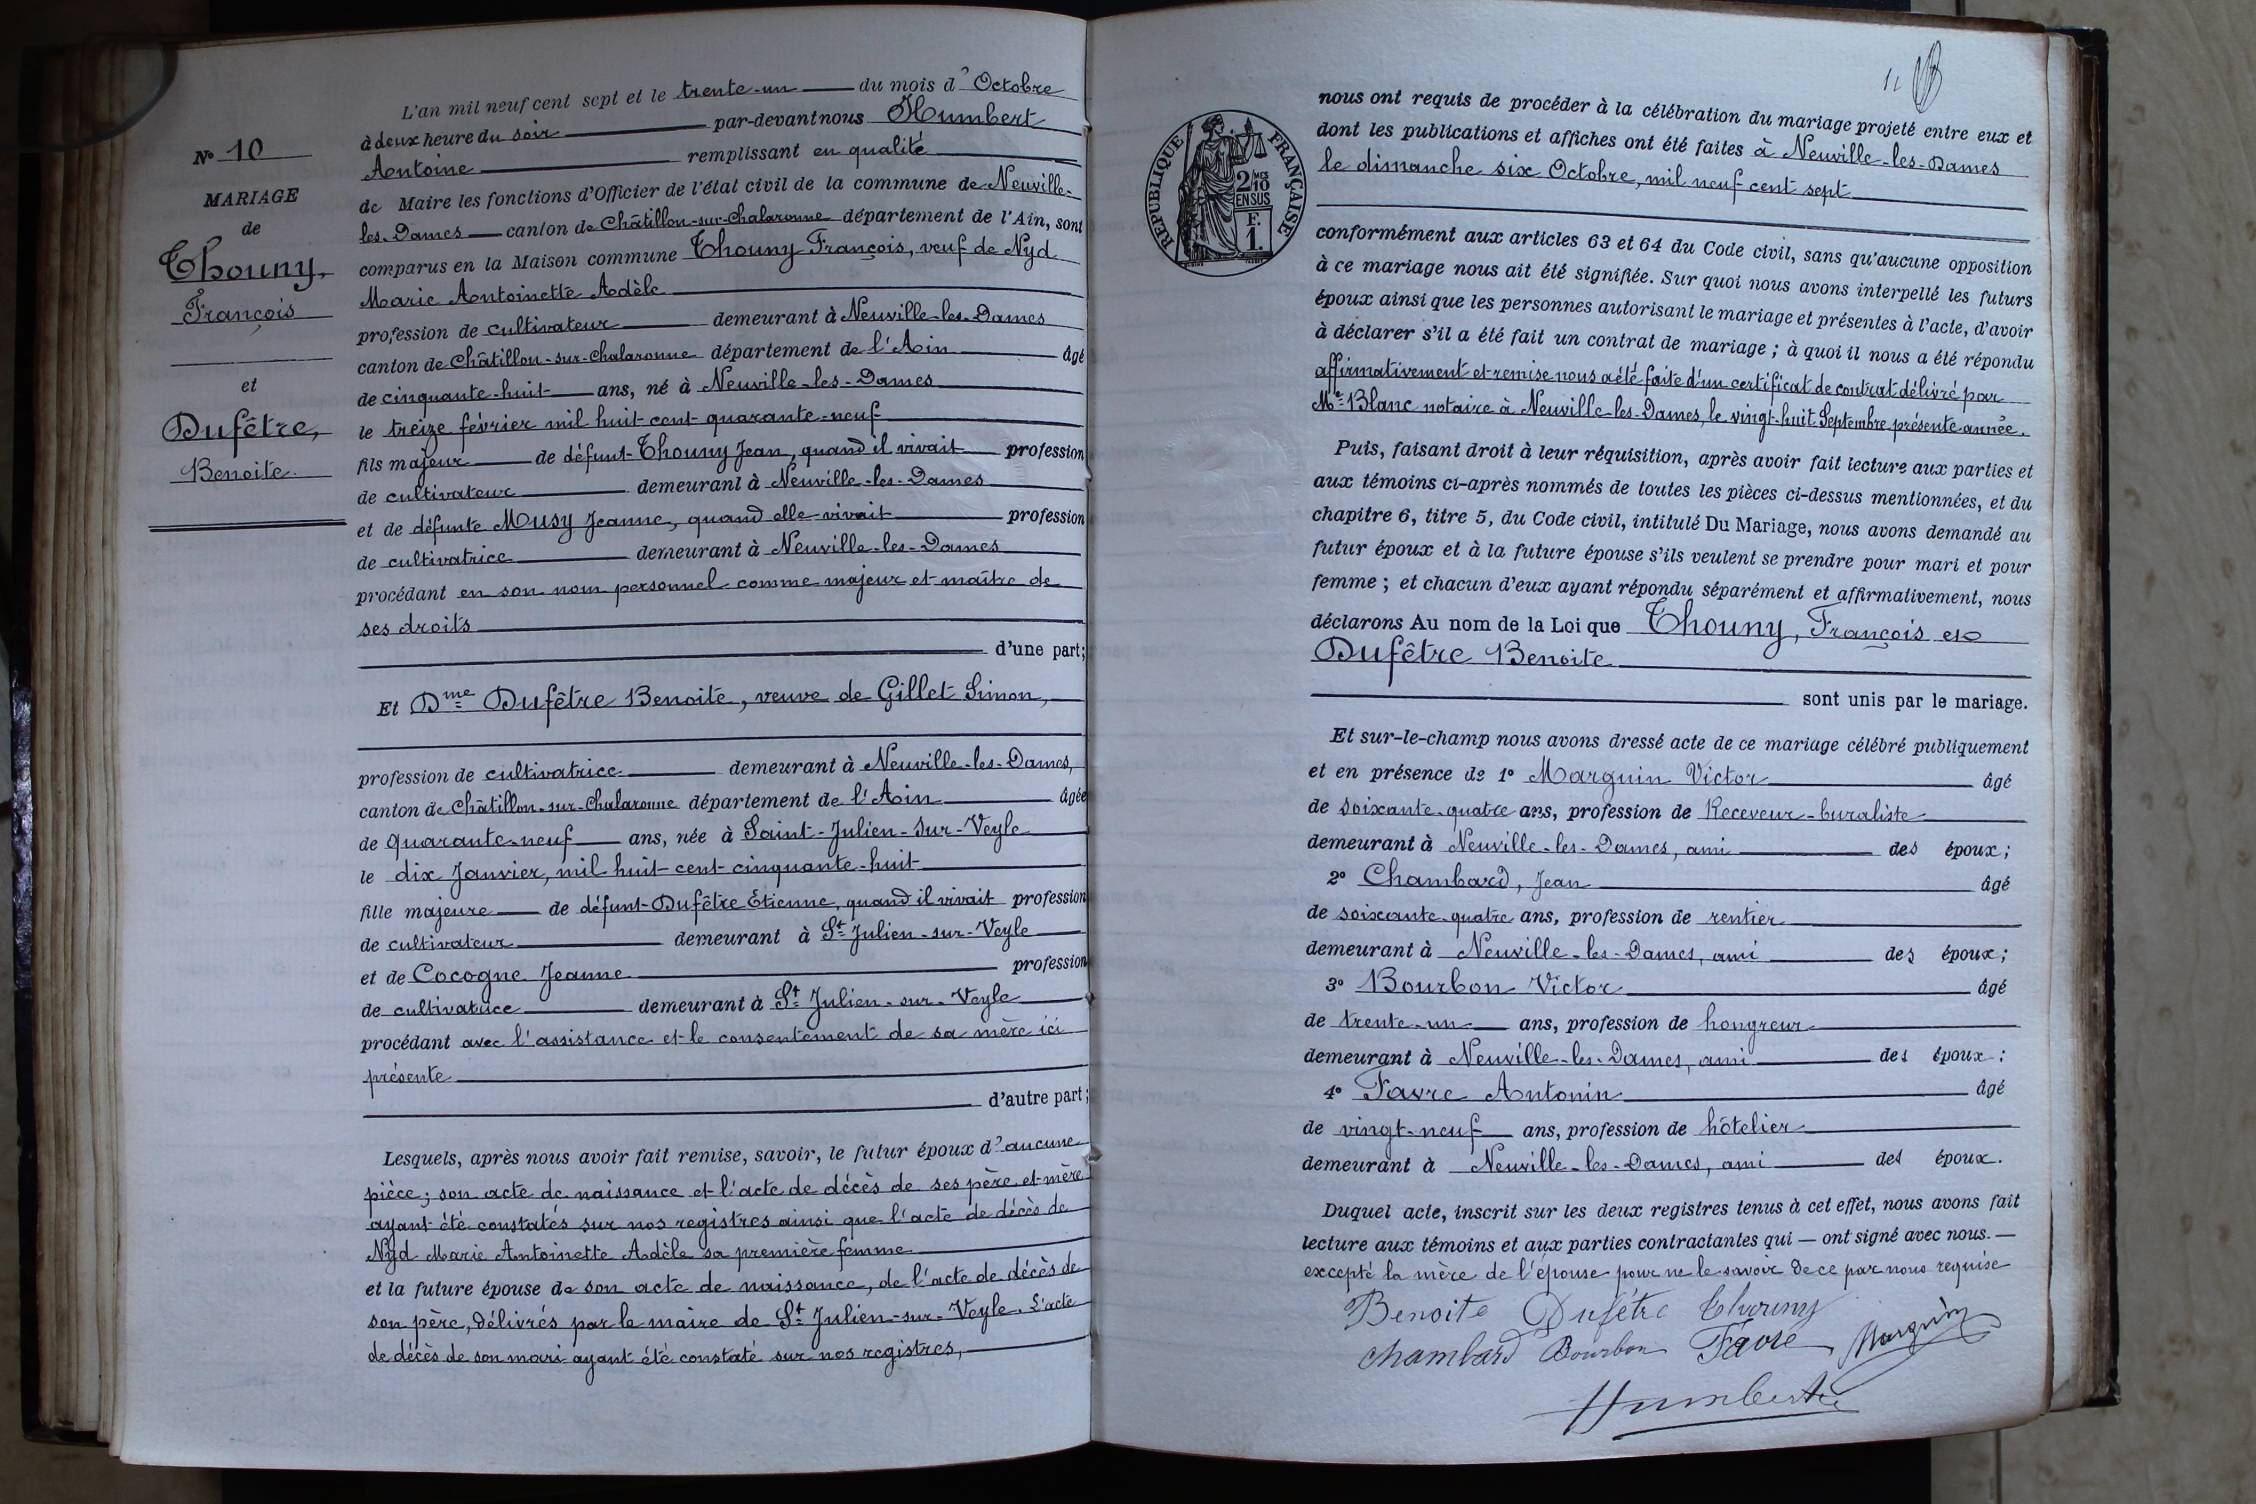 N° 10
MARIAGE
de
Thouny,
François
et
Dufêtre,
Benoite.
L'an mil neuf cent sept et le trente-un du mois d'Octobre
à deux heure du soir par-devant nous Humbert
Antoine remplissant en qualité
de Maire les fonctions d'Officier de l'état civil de la commune de Neuville-
les-Dames canton de Châtillon-sur-Chalaronne département de l'Ain, sont
comparus en la Maison commune Thouny François, veuf de Nyd
Marie Antoinette Adèle
profession de cultivateur demeurant à Neuville-les-Dames
canton de Châtillon-sur-Chalaronne département de l'Ain âgé
de cinquante-huit ans, né à Neuville-les-Dames
le treize février mil huit cent quarante-neuf
fils majeur de défunt Thouny Jean, quand il vivait profession
de cultivateur demeurant à Neuville-les-Dames
et de défunte Musy Jeanne, quand elle vivait profession
de cultivatrice demeurant à Neuville-les-Dames
procédant en son nom personnel comme majeur et maître de
ses droits
d'une part;
Et Dme Dufêtre Benoite, veuve de Gillet Simon,
profession de cultivatrice demeurant à Neuville-les-Dames,
canton de Châtillon-sur-Chalaronne département de l'Ain âgée
de quarante-neuf ans, née à Saint-Julien-sur-Veyle
le dix Janvier, mil huit cent cinquante-huit
fille majeure de défunt Dufêtre Etienne, quand il vivait profession
de cultivateur demeurant à St Julien-sur-Veyle
et de Cocogne Jeanne profession
de cultivatrice demeurant à St Julien-sur-Veyle
procédant avec l'assistance et le consentement de sa mère ici
présente
d'autre part;
Lesquels, après nous avoir fait remise, savoir, le futur époux d'aucune
pièce; son acte de naissance et l'acte de décès de ses père et mère
ayant été constatés sur nos registres ainsi que l'acte de décès de
Nyd Marie Antoinette Adèle sa première femme
et la future épouse de son acte de naissance, de l'acte de décès de
son père, délivrés par le maire de St Julien-sur-Veyle. L'acte
de décès de son mari ayant été constaté sur nos registres,
11
RÉPUBLIQUE FRANÇAISE
2 MES
10
EN SUS
F.
1.
nous ont requis de procéder à la célébration du mariage projeté entre eux et
dont les publications et affiches ont été faites à Neuville-les-Dames
le dimanche six Octobre, mil neuf cent sept
conformément aux articles 63 et 64 du Code civil, sans qu'aucune opposition
à ce mariage nous ait été signifiée. Sur quoi nous avons interpellé les futurs
époux ainsi que les personnes autorisant le mariage et présentes à l'acte, d'avoir
à déclarer s'il a été fait un contrat de mariage; à quoi il nous a été répondu
affirmativement et remise nous a été faite d'un certificat de contrat délivré par
Me Blanc notaire à Neuville-les-Dames, le vingt-huit Septembre présente année.
Puis, faisant droit à leur réquisition, après avoir fait lecture aux parties et
aux témoins ci-après nommés de toutes les pièces ci-dessus mentionnées, et du
chapitre 6, titre 5, du Code civil, intitulé Du Mariage, nous avons demandé au
futur époux et à la future épouse s'ils veulent se prendre pour mari et pour
femme; et chacun d'eux ayant répondu séparément et affirmativement, nous
déclarons Au nom de la Loi que Thouny, François et
Dufêtre Benoite
sont unis par le mariage.
Et sur-le-champ nous avons dressé acte de ce mariage célébré publiquement
et en présence de 1° Marguin Victor âgé
de soixante-quatre ans, profession de Receveur-buraliste
demeurant à Neuville-les-Dames, ami des époux;
2° Chambard, Jean âgé
de soixante-quatre ans, profession de rentier
demeurant à Neuville-les-Dames, ami des époux;
3° Bourbon Victor âgé
de trente-un ans, profession de hongreur
demeurant à Neuville-les-Dames, ami des époux;
4° Favre Antonin âgé
de vingt-neuf ans, profession de hôtelier
demeurant à Neuville-les-Dames, ami des époux.
Duquel acte, inscrit sur les deux registres tenus à cet effet, nous avons fait
lecture aux témoins et aux parties contractantes qui — ont signé avec nous. —
excepté la mère de l'épouse pour ne le savoir de ce par nous requise
Benoite Dufêtre Thouny
Chambard Bourbon Favre Marguin
Humbert